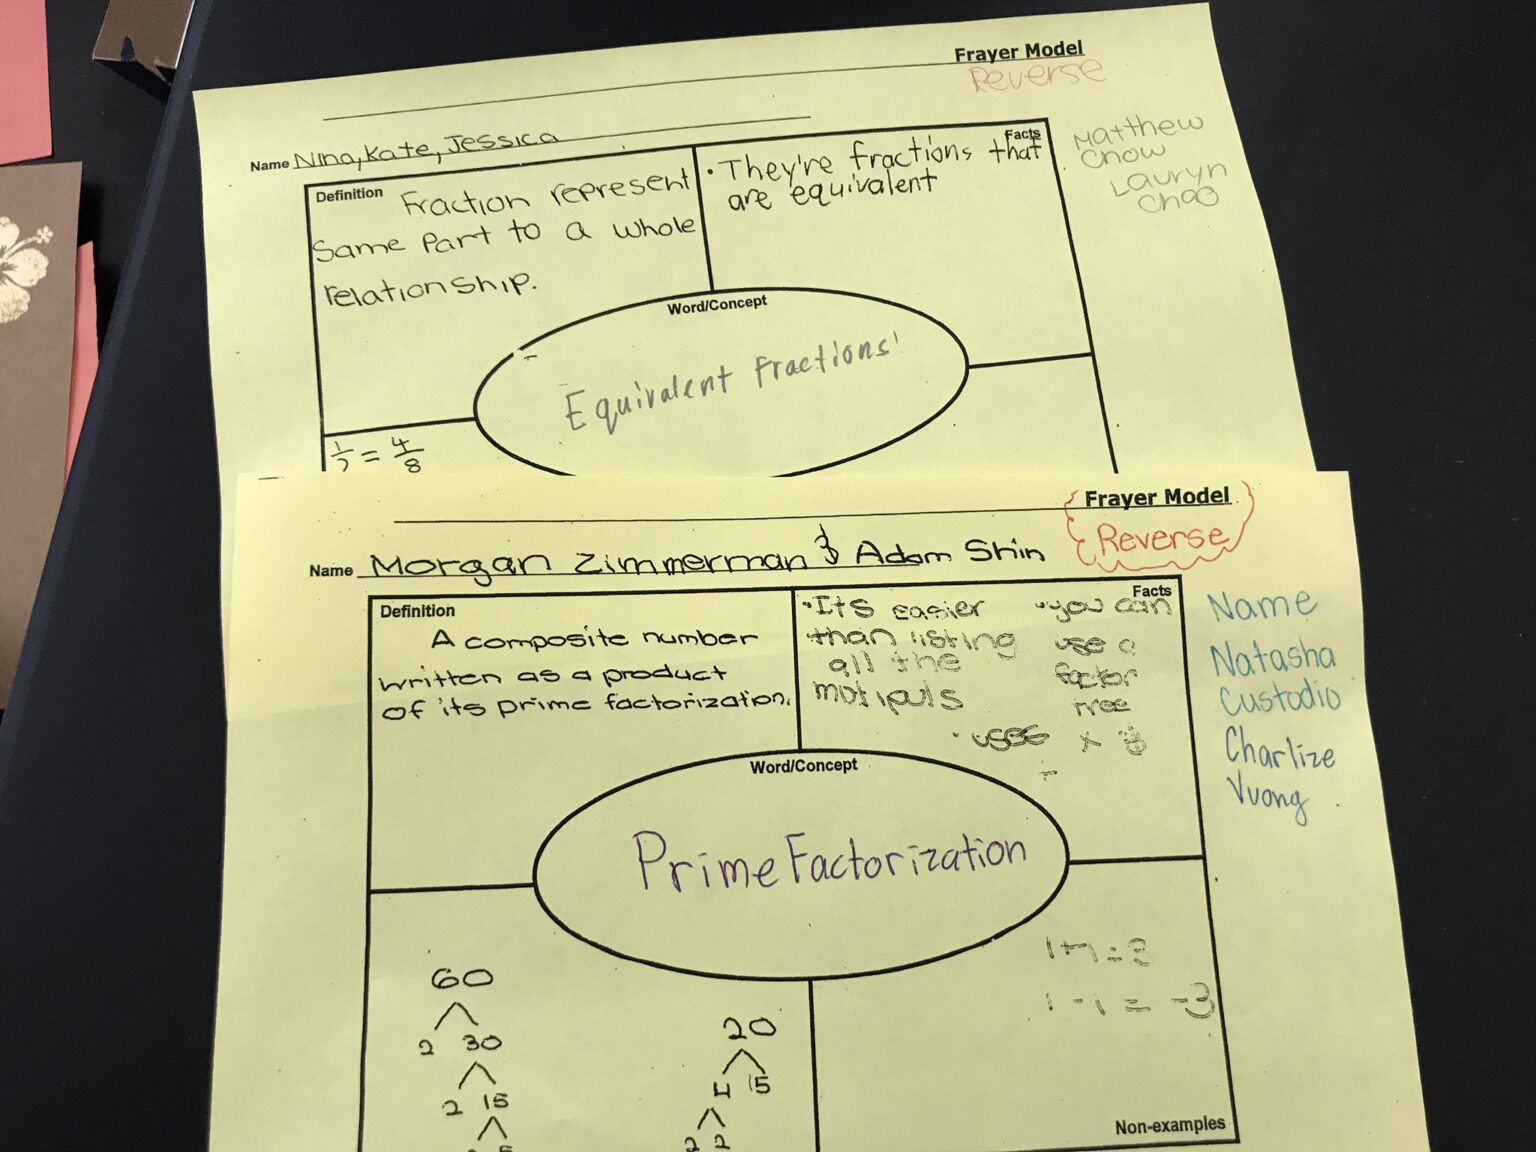 Frayer Model
Reverse
Name Nina, Kate, Jessica
Matthew
Chow
Lauryn
Chao
Definition
Fraction represent
same part to a whole
relationship.
Facts
• They're fractions that
are equivalent
Word/Concept
Equivalent Fractions
1/2 = 4/8
Frayer Model
Reverse
Name Morgan Zimmerman & Adam Shin
Name
Natasha
Custodio
Charlize
Vuong
Definition
A composite number
written as a product
of its prime factorization.
Facts
• Its easier
than listing
all the
motipuls
• you can
use a
factor
Tree
• uses x
÷
Word/Concept
Prime Factorization
60
2 30
2 15
5
20
4 15
2 2
1+1=3
1-1=-3
Non-examples